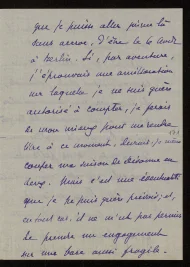 que je puisse aller jusque là
sans arrêt, d'être le 6 Août
à Berlin. Si, par aventure,
j'éprouvais une amélioration
sur laquelle je ne suis guère
autorisé à compter, je ferais
de mon mieux pour me rendre
libre à ce moment,
couper ma saison de
deux. Mais c'est une éventualité
que je ne puis guère prévoir; et,
en tout cas, il ne m'est pas permis
de prendre un engagement
sur une base aussi fragile.